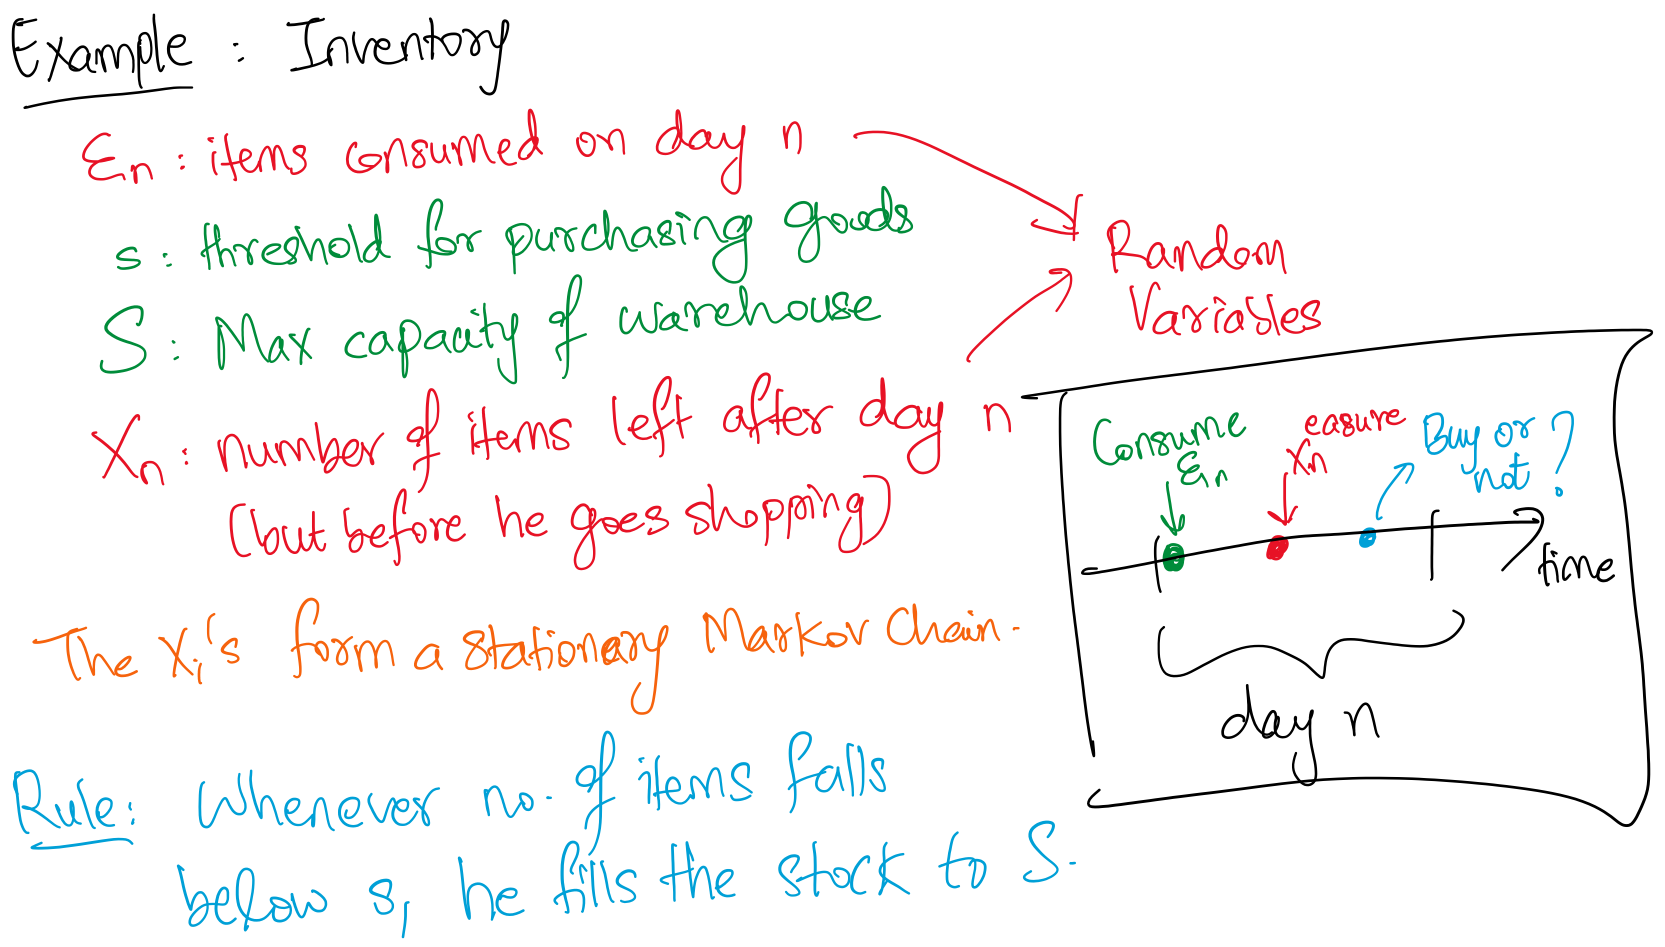 Example : Inventory
Ɛn : items consumed on day n
s : threshold for purchasing goods
S : Max capacity of warehouse
Xn : number of items left after day n
(but before he goes shopping)
Random
Variables
The Xi's form a stationary Markov Chain.
Rule: Whenever no. of items falls
below s, he fills the stock to S.
Consume
Ɛn
easure
Xn
Buy or
not?
time
day n